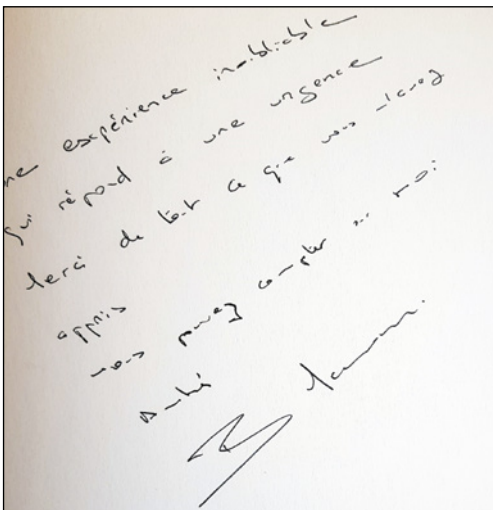 ne expérience inoubliable
qui répond à une urgence
lerci de tout ce que vous m'avez
appris
vous pouvez compter sur moi
Amitié